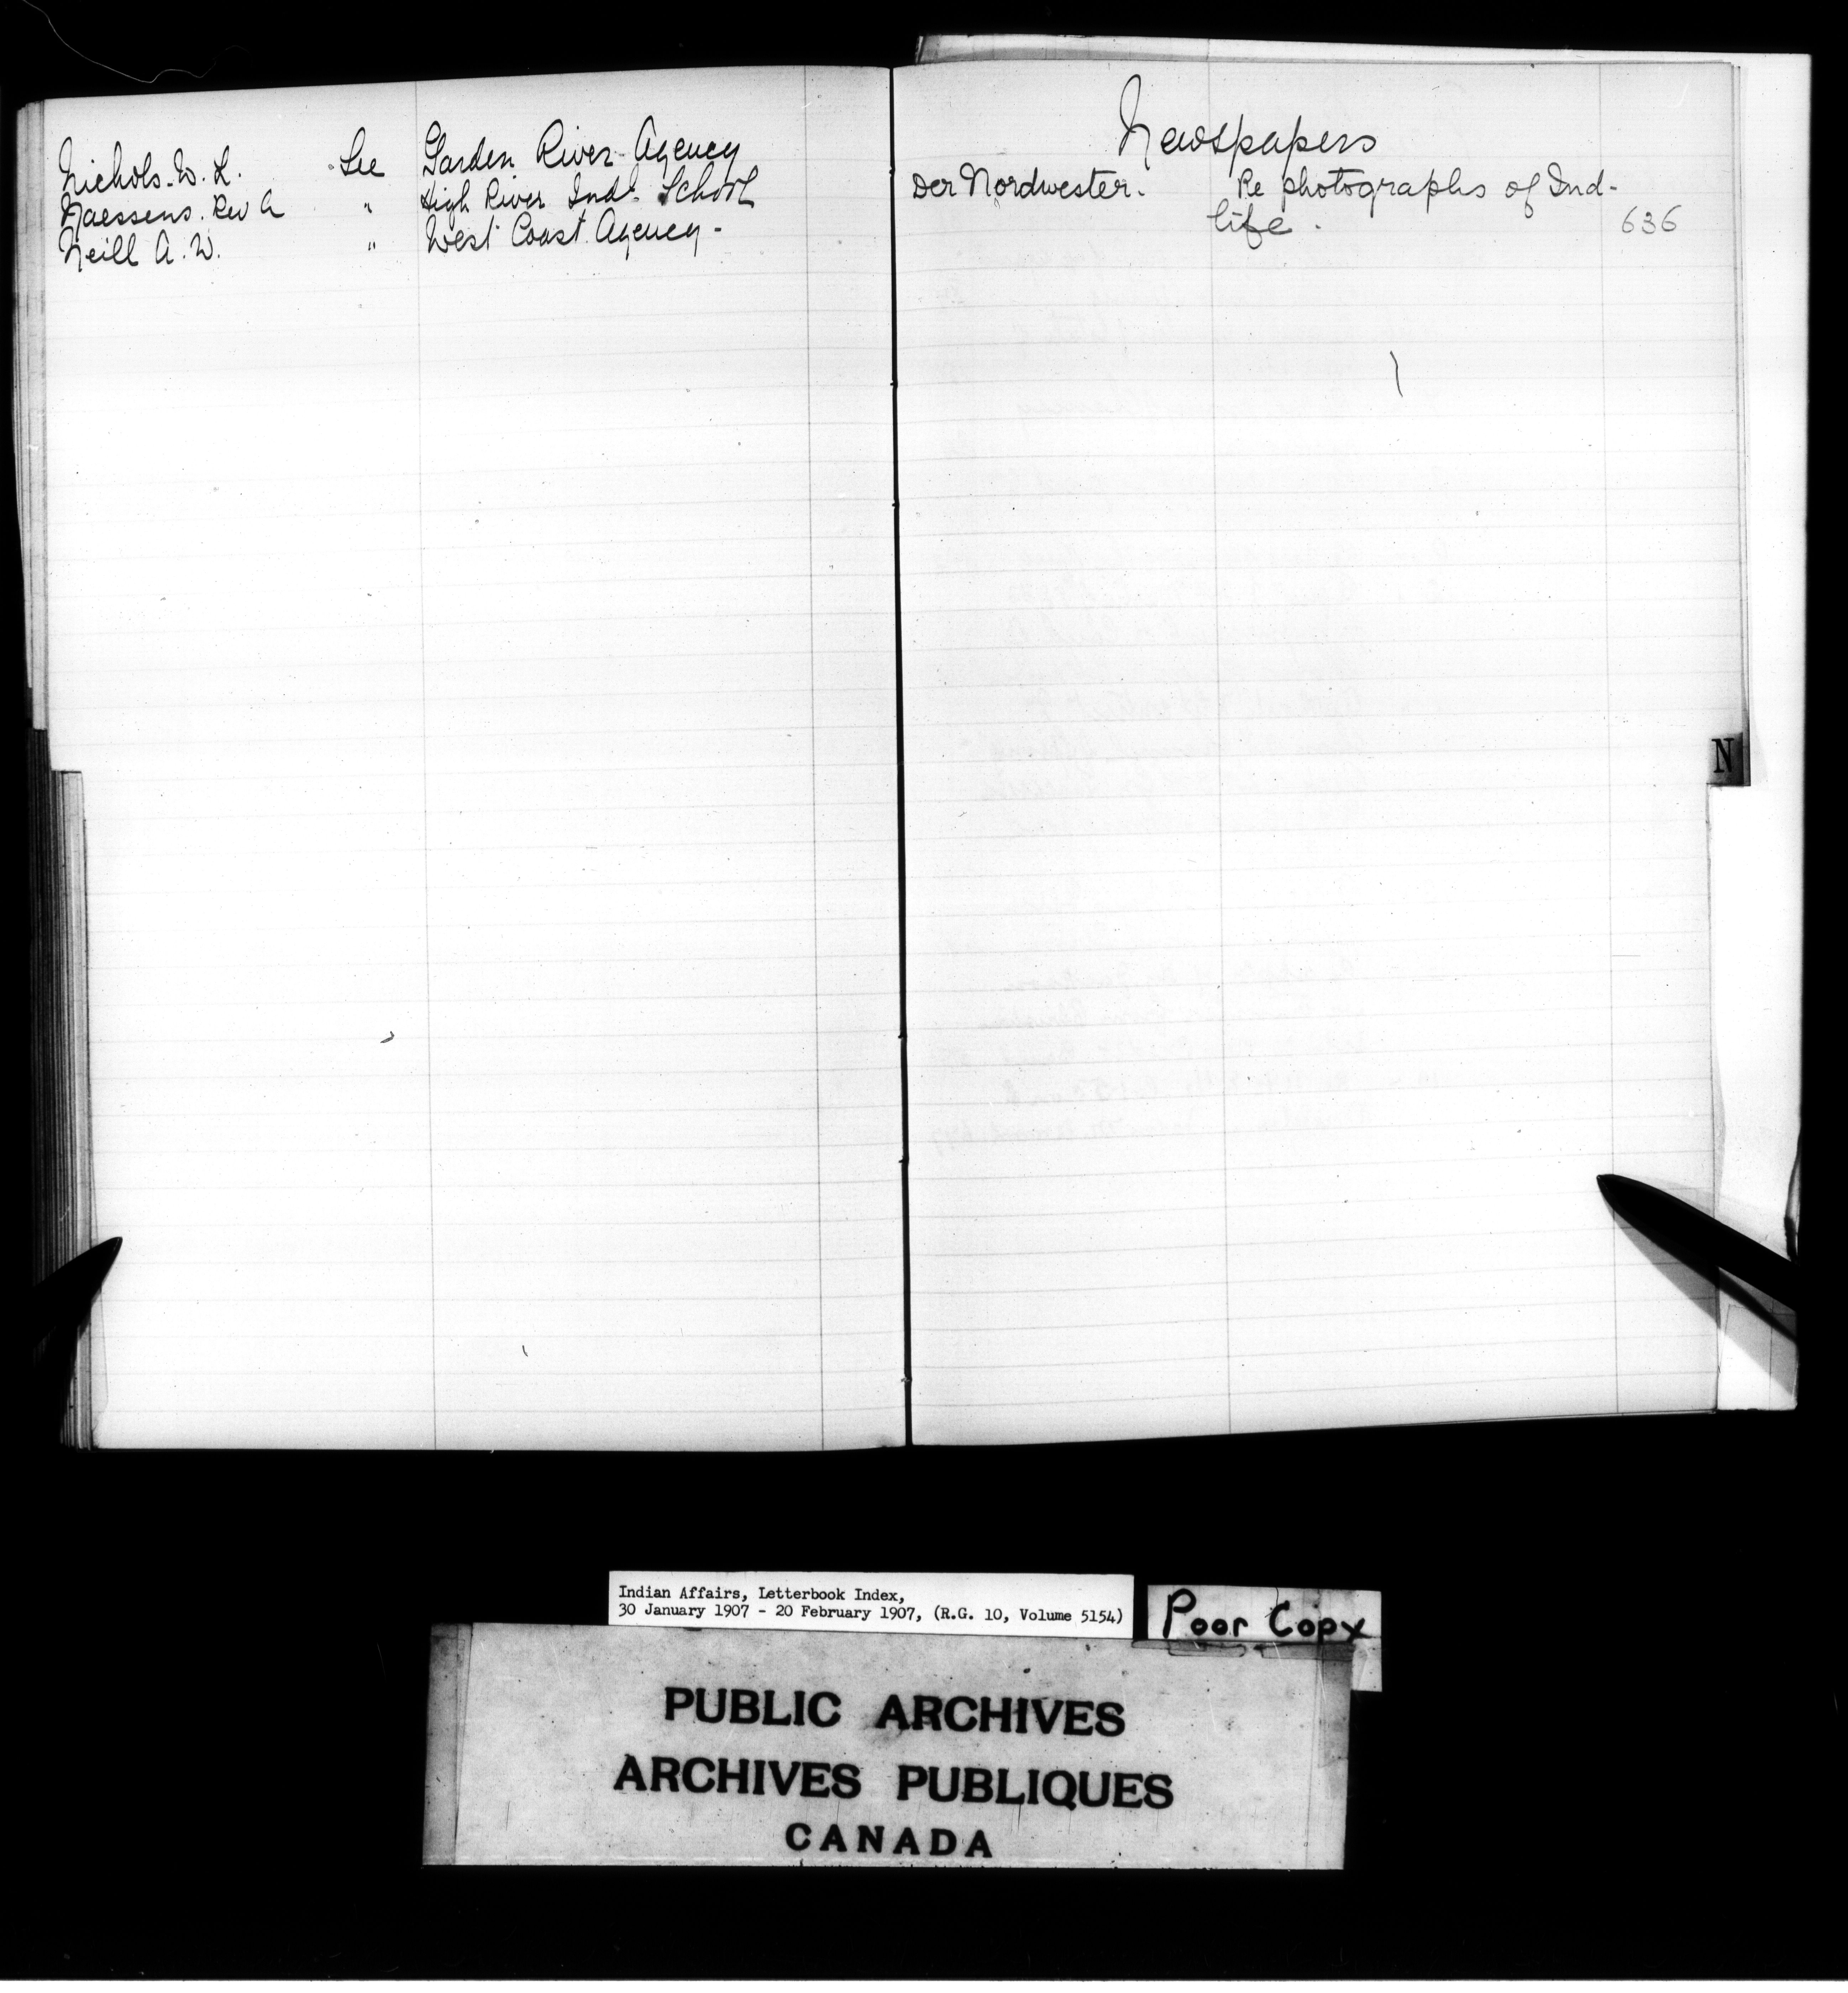 Nichols. W. L. See Garden River Agency
Naessens. Rev A " High River Ind. School
Neill A. W. " West Coast Agency -
Newspapers
Der Nordwester. Re photographs of Ind-
life. 636
N
Indian Affairs, Letterbook Index,
30 January 1907 - 20 February 1907, (R.G. 10, Volume 5154)
Poor Copy
PUBLIC ARCHIVES
ARCHIVES PUBLIQUES
CANADA